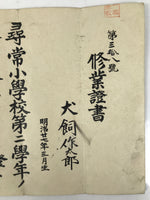 第三拾八號
修業證書
犬飼作太郎
明治廿七年三月生
尋常小學校第三學年ノ